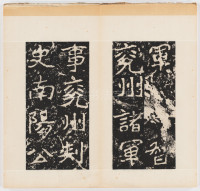 軍 督
兗州諸軍
事兗州刺
史南陽公